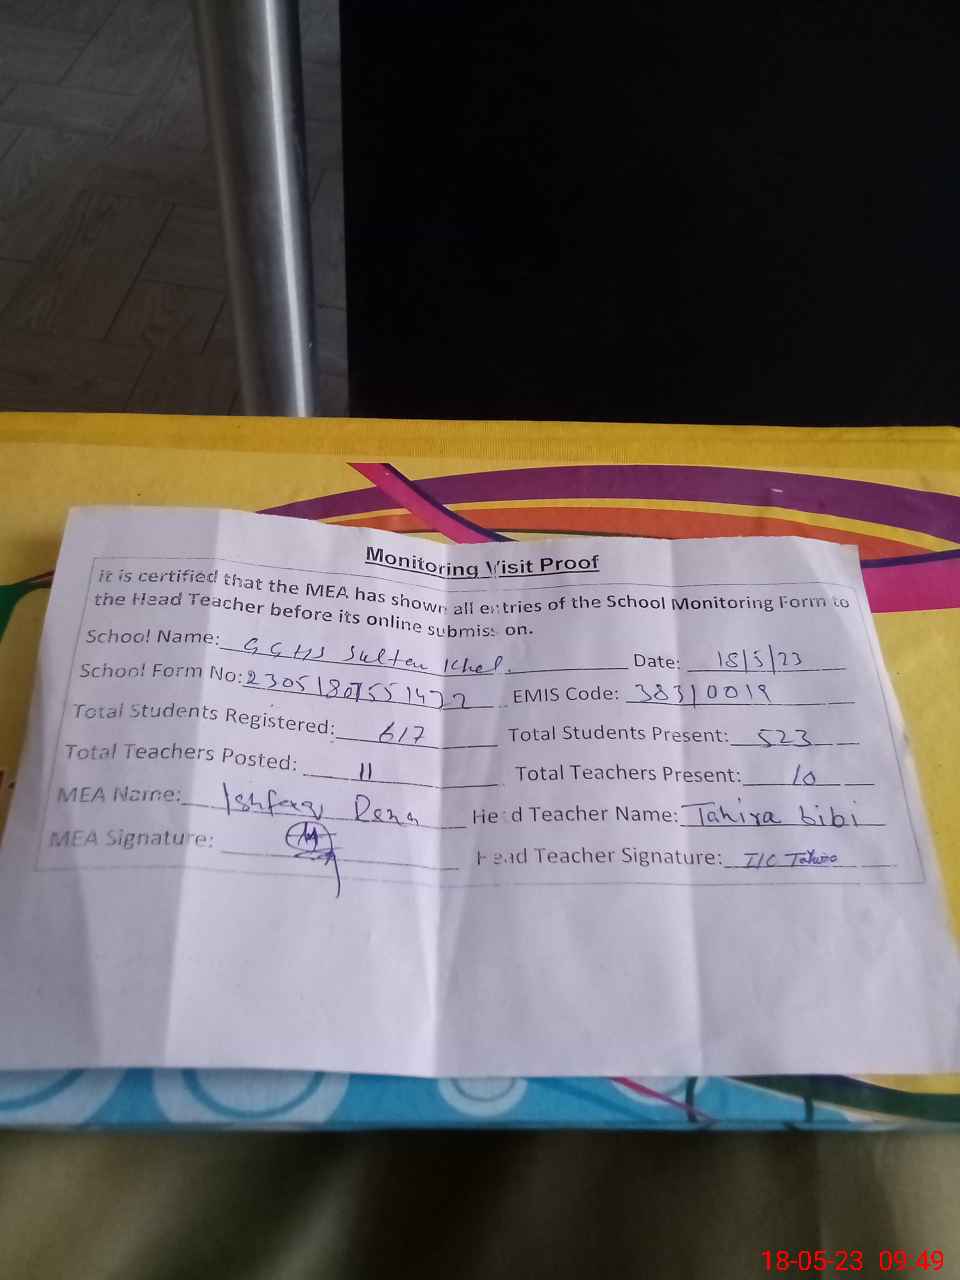 Monitoring Visit Proof
it is certified that the MEA has shown all entries of the School Monitoring Form to
the Head Teacher before its online submission.
School Name: GGHS Sultan Khel. Date: 18/5/23
School Form No: EMIS Code: 38310019
Total Students Registered: 617 Total Students Present: 523
Total Teachers Posted: 11 Total Teachers Present: 10
MEA Name: Ishfaq Head Teacher Name: Tahira bibi
MEA Signature: Head Teacher Signature: I/C Tahira
18-05-23 09:49